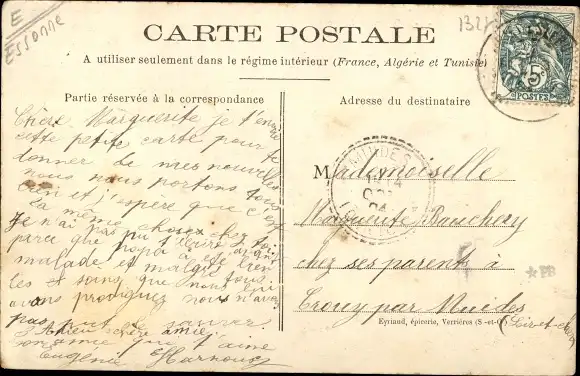 E
Essonne
CARTE POSTALE
A utiliser seulement dans le régime intérieur (France, Algérie et Tunisie)
5c
POSTES
Partie réservée à la correspondance
Chère Marguerite je t'envoie
cette petite carte pour te
donner de mes nouvelles
nous nous portons tous
bien et j'espère que c'est
la même chose chez toi
Je n'ai pas pu t'écrire avant
parce que papa a été bien
malade et malgré tous
les soins que nous lui
avons prodigués nous n'avons
pas pu le sauver
Adieu chère amie
ton amie qui t'aime
Eugénie
Adresse du destinataire
MUIDES
Mademoiselle
Marguerite
chez ses parents à
Crouy par Muides
(Loir-et-Cher)
Eyriaud, épicerie, Verrières (S.-et-O.)
*PB